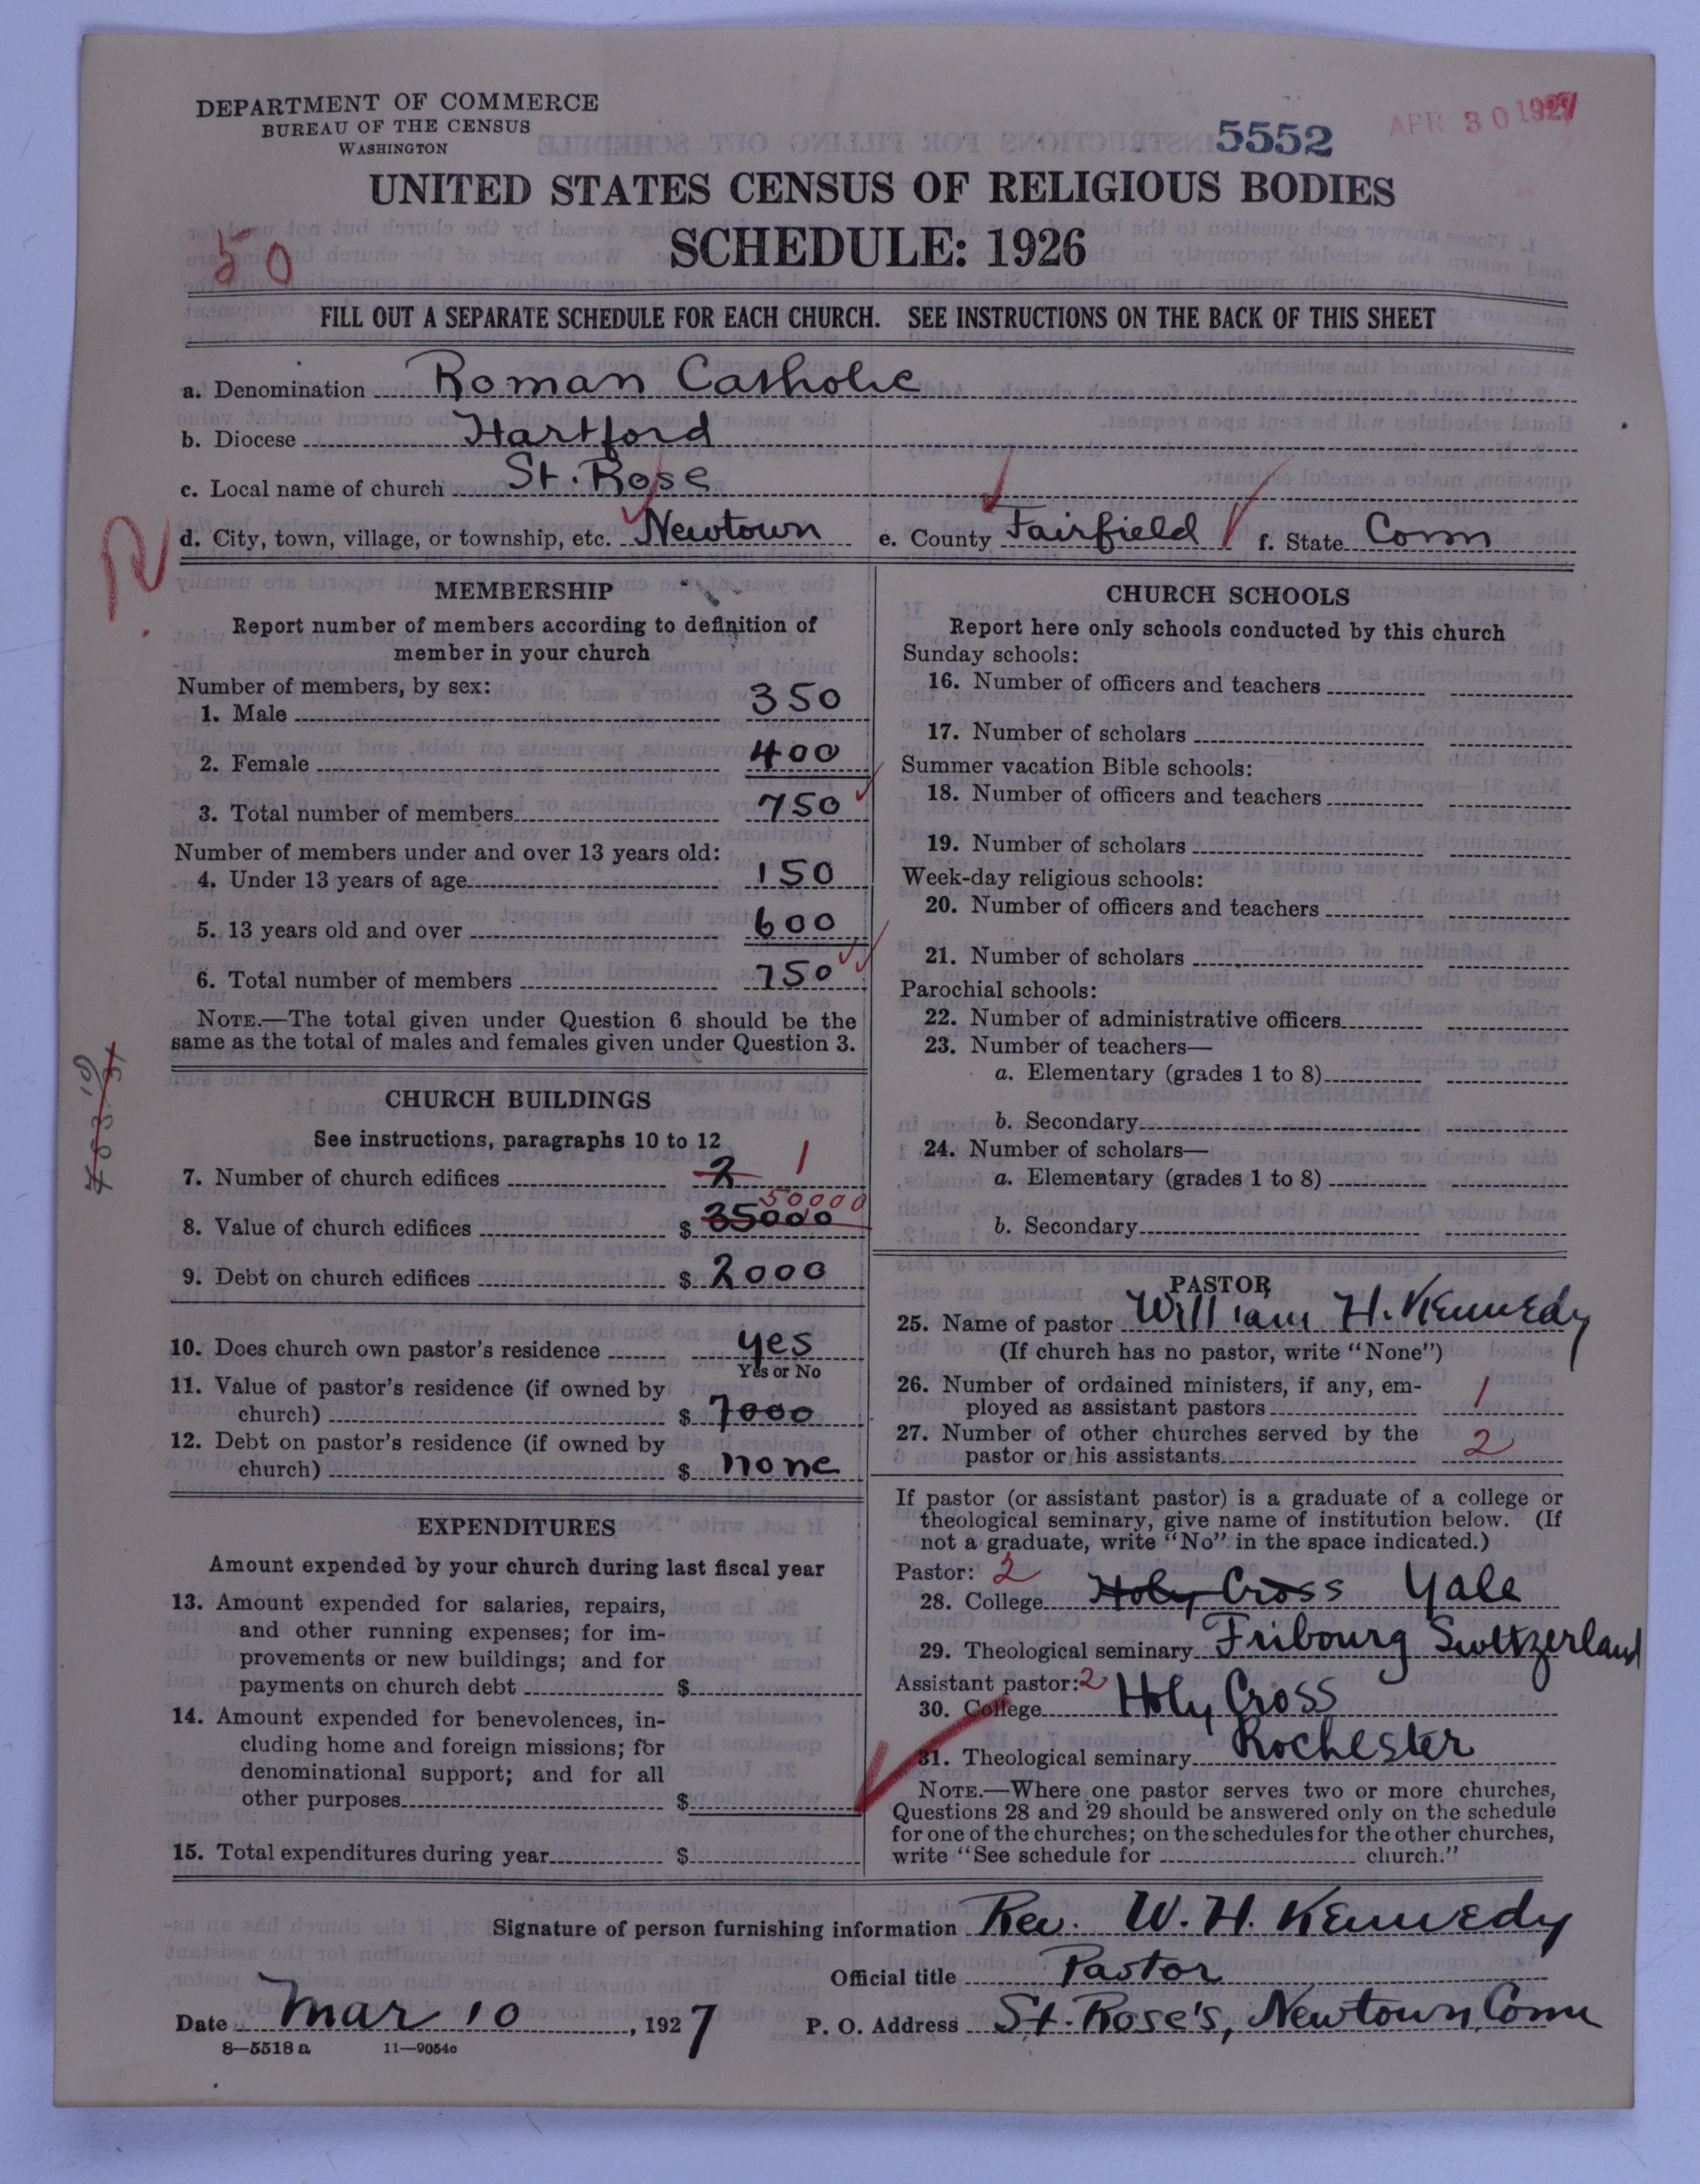 DEPARTMENT OF COMMERCE
BUREAU OF THE CENSUS
WASHINGTON
5552
APR 30 1927
UNITED STATES CENSUS OF RELIGIOUS BODIES
SCHEDULE: 1926
50
FILL OUT A SEPARATE SCHEDULE FOR EACH CHURCH. SEE INSTRUCTIONS ON THE BACK OF THIS SHEET
a. Denomination Roman Catholic
b. Diocese Hartford
c. Local name of church St. Rose
d. City, town, village, or township, etc. Newtown e. County Fairfield f. State Conn
R
MEMBERSHIP
Report number of members according to definition of
member in your church
Number of members, by sex:
1. Male 350
2. Female 400
3. Total number of members 750
Number of members under and over 13 years old:
4. Under 13 years of age 150
5. 13 years old and over 600
6. Total number of members 750
NOTE.—The total given under Question 6 should be the
same as the total of males and females given under Question 3.
CHURCH BUILDINGS
See instructions, paragraphs 10 to 12
7. Number of church edifices 2 1
8. Value of church edifices $ 35000 50000
9. Debt on church edifices $ 2000
10. Does church own pastor's residence yes
Yes or No
11. Value of pastor's residence (if owned by
church) $ 7000
12. Debt on pastor's residence (if owned by
church) $ none
EXPENDITURES
Amount expended by your church during last fiscal year
13. Amount expended for salaries, repairs,
and other running expenses; for im-
provements or new buildings; and for
payments on church debt $
14. Amount expended for benevolences, in-
cluding home and foreign missions; for
denominational support; and for all
other purposes $
15. Total expenditures during year $
CHURCH SCHOOLS
Report here only schools conducted by this church
Sunday schools:
16. Number of officers and teachers
17. Number of scholars
Summer vacation Bible schools:
18. Number of officers and teachers
19. Number of scholars
Week-day religious schools:
20. Number of officers and teachers
21. Number of scholars
Parochial schools:
22. Number of administrative officers
23. Number of teachers—
a. Elementary (grades 1 to 8)
b. Secondary
24. Number of scholars—
a. Elementary (grades 1 to 8)
b. Secondary
PASTOR
25. Name of pastor William H. Kennedy
(If church has no pastor, write "None")
26. Number of ordained ministers, if any, em-
ployed as assistant pastors 1
27. Number of other churches served by the
pastor or his assistants 2
If pastor (or assistant pastor) is a graduate of a college or
theological seminary, give name of institution below. (If
not a graduate, write "No" in the space indicated.)
Pastor: 2
28. College Holy Cross Yale
29. Theological seminary Fribourg Switzerland
Assistant pastor: 2
30. College Holy Cross
31. Theological seminary Rochester
NOTE.—Where one pastor serves two or more churches,
Questions 28 and 29 should be answered only on the schedule
for one of the churches; on the schedules for the other churches,
write "See schedule for church."
Signature of person furnishing information Rev. W. H. Kennedy
Official title Pastor
Date Mar 10, 1927 P. O. Address St. Rose's, Newtown, Conn
8—5518 a 11—9054c